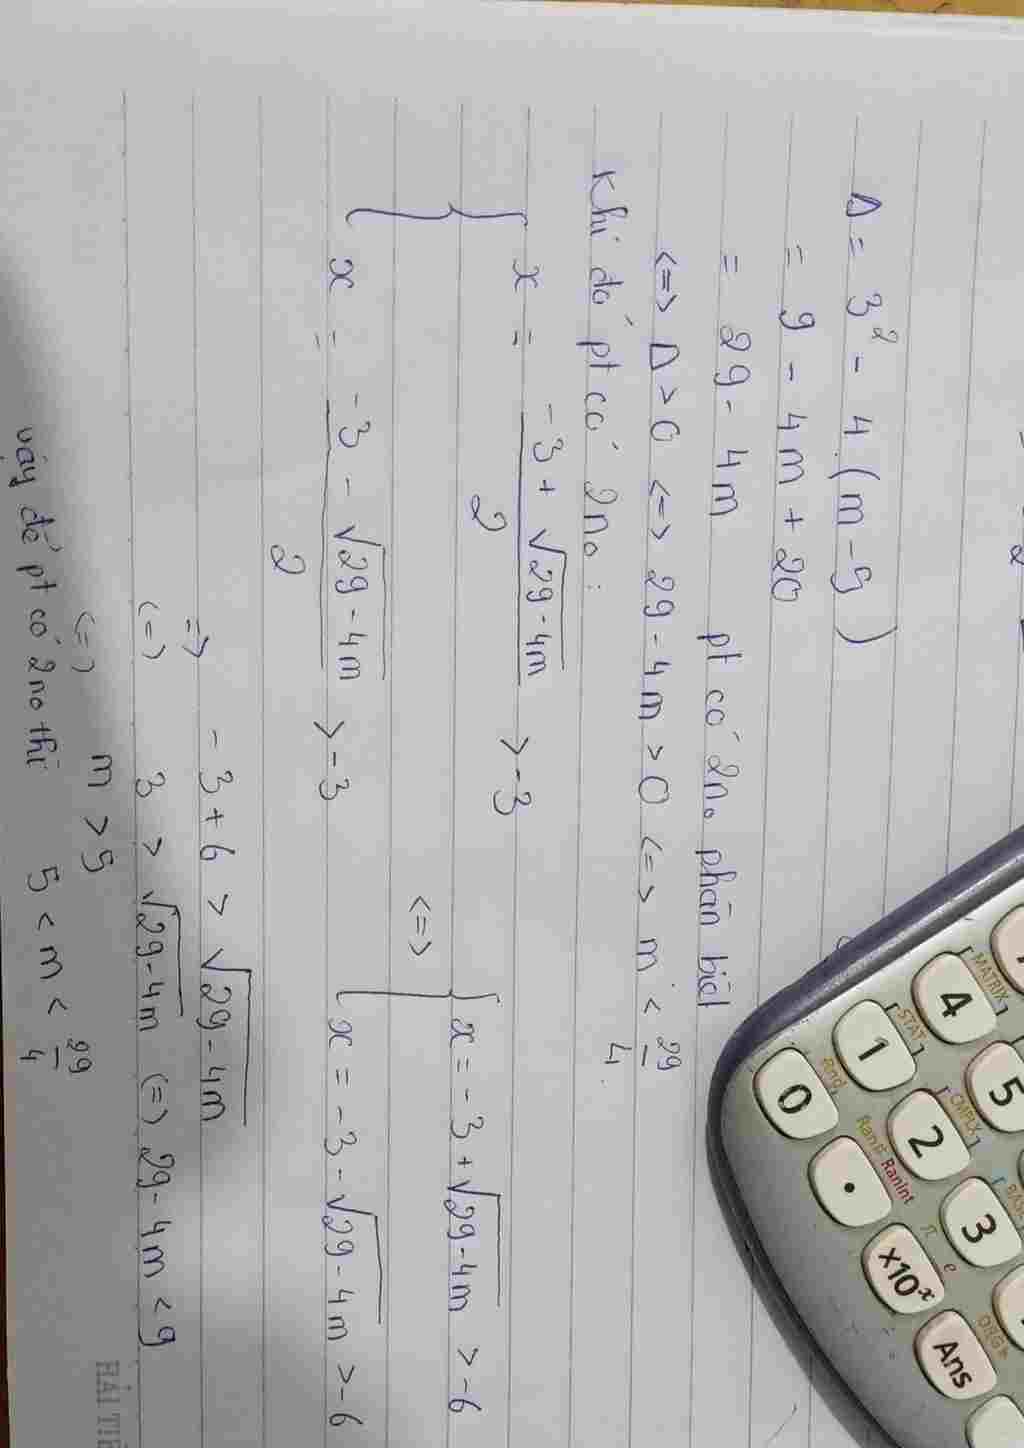 Δ = 3² - 4(m-5)
= 9 - 4m + 20
= 29 - 4m pt có 2n₀ phân biệt
<=> Δ > 0 <=> 29 - 4m > 0 <=> m < 29/4.
Khi đó pt có 2n₀:
{ x = (-3 + √(29-4m))/2 > -3
x = (-3 - √(29-4m))/2 > -3
<=> { x = -3 + √(29-4m) > -6
x = -3 - √(29-4m) > -6
=> -3 + 6 > √(29-4m)
(=) 3 > √(29-4m) (=) 29 - 4m < 9
(=) m > 5
vậy để pt có 2n₀ thì 5 < m < 29/4
MATRIX
4
5
[STAT]
[CMPLX]
1
2
3
Rnd
Ran#
RanInt
π
e
0
•
×10ˣ
Ans
HẢI TIẾ